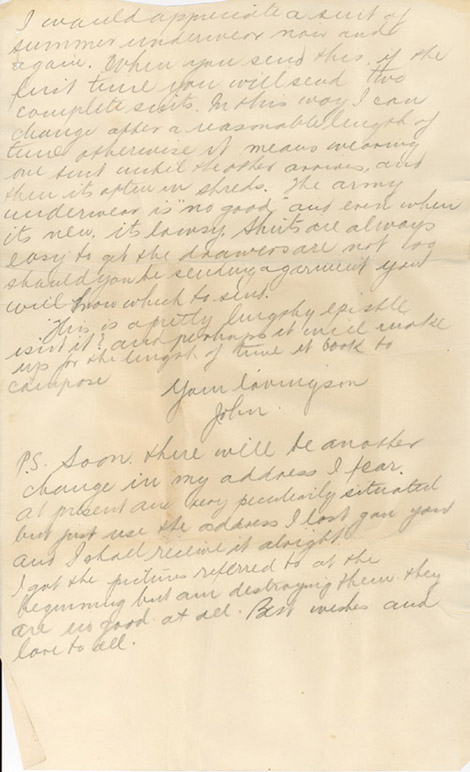 I would appreciate a suit of
summer underwear now and
again. When you send this, if the
first time you will send two
complete suits. In this way I can
change after a reasonable length of
time otherwise it means wearing
one suit until the other arrives, and
then its often in shreds. The army
underwear is "no good" and even when
its new, its lousy. Shirts are always
easy to get the drawers are not so
should you be sending a garment you
will know which to send.
This is a pretty lengthy epistle
isn't it? and perhaps it will make
up for the length of time it took to
compose
Your loving son
John.
P.S. Soon there will be another
change in my address I fear.
at present are very peculiarily situated
but just use the address I last gave you
and I shall receive it alright.
I got the pictures referred to at the
beginning but am destroying them they
are no good at all. Best wishes and
love to all.